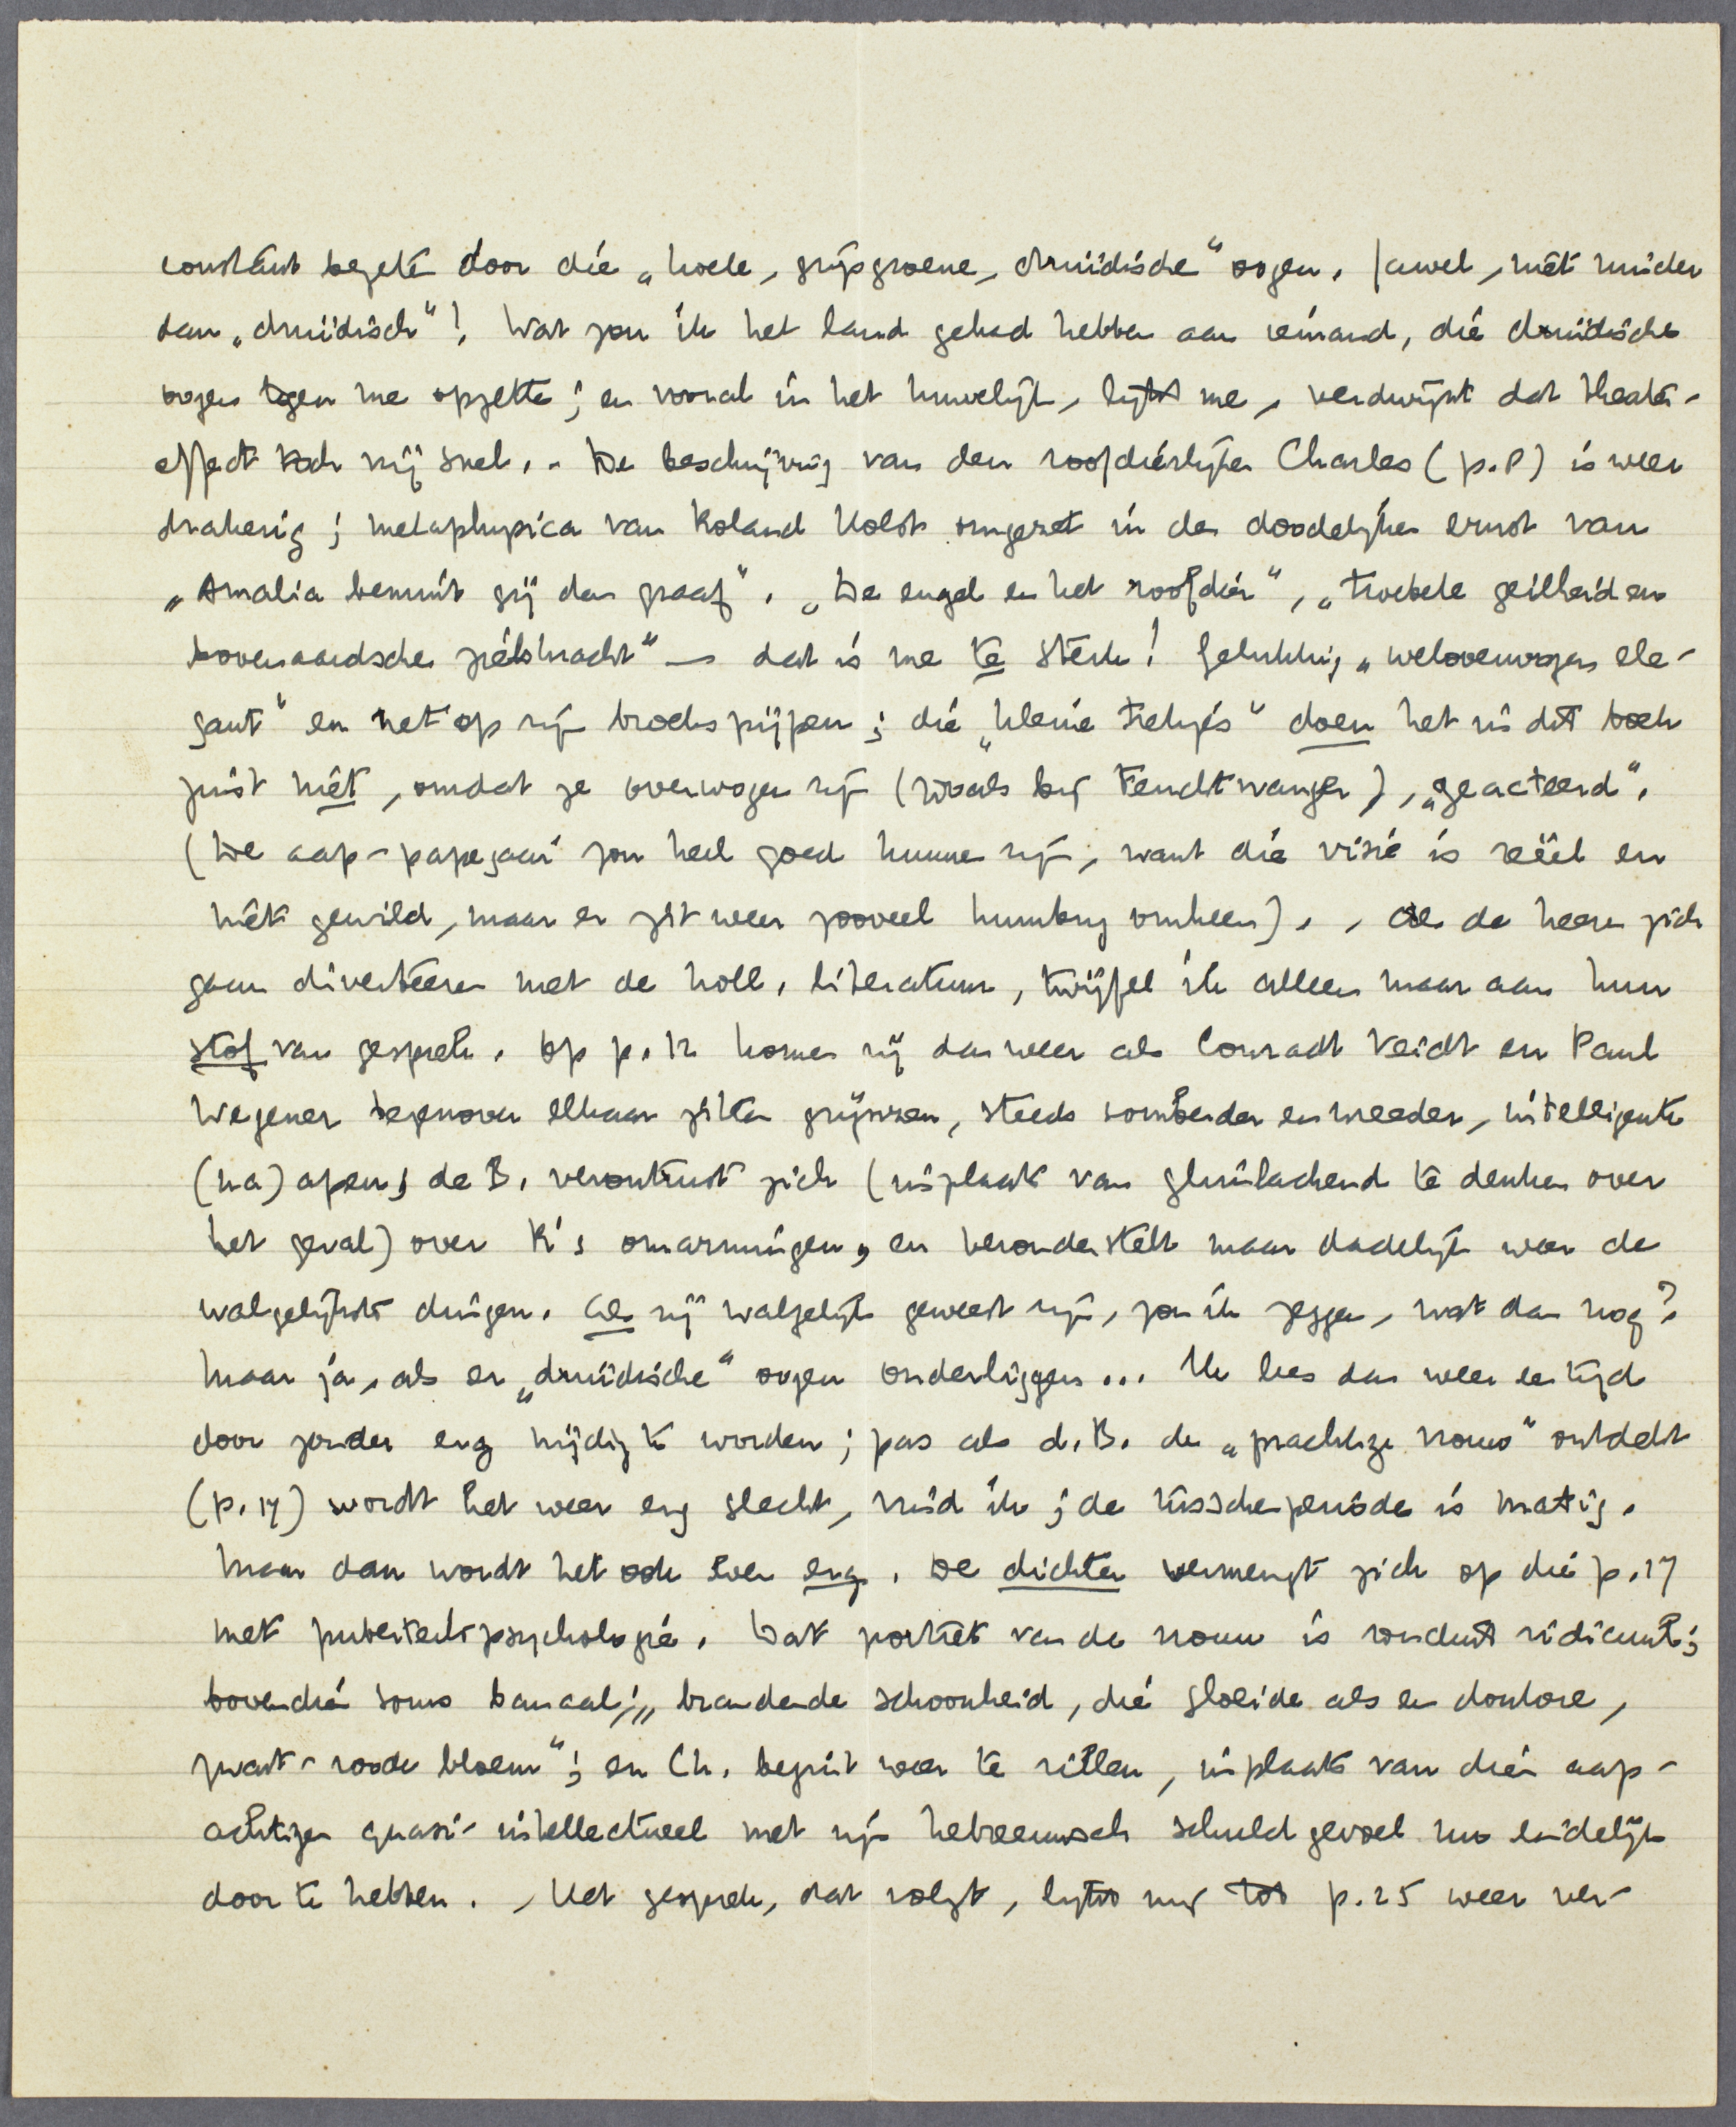 constant bezeten door die „koele, grijsgroene, druïdische” oogen. Jawel, niet minder
dan „druïdisch”! Wat zou ik het land gehad hebben aan iemand, die druïdische
oogen tegen me opzette; en vooral in het huwelijk, lijkt me, verdwijnt dat theater-
effect toch vrij snel. - De beschrijving van den roofdierlijken Charles (p. 8) is weer
drakerig; metaphysica van Roland Holst omgezet in den doodelijken ernst van
„Amalia bemint gij den graaf”. „De engel en het roofdier”, „troebele geilheid en
bovenaardsche zielskracht” — dat is me te sterk! Gelukkig „weloverwogen ele-
gant” en net op zijn broekspijpen; die „kleine trekjes” doen het in dit boek
juist niet, omdat ze overwogen zijn (zooals bij Feuchtwanger), „geacteerd”.
(De aap-papegaai zou heel goed kunnen zijn, want die visie is reëel en
niet gewild, maar er zit weer zooveel humbug omheen). , Als de heeren zich
gaan diverteeren met de holl. literatuur, twijfel ik alleen maar aan hun
stof van gesprek. Op p. 12 komen zij dan weer als Conradt Veidt en Paul
Wegener tegenover elkaar zitten grijnzen, steeds somberder en wreeder, intelligente
(na)apen; de B. verontrust zich (inplaats van glimlachend te denken over
het geval) over K's omarmingen, en veronderstelt maar dadelijk weer de
walgelijkste dingen. Als zij walgelijk geweest zijn, zou ik zeggen, wat dan nog?
Maar ja, als er „druïdische” oogen onderliggen... Ik lees dan weer een tijd
door zonder erg nijdig te worden; pas als d. B. de „prachtige vrouw” ontdekt
(p. 17) wordt het weer erg slecht, vind ik; de tusschenperiode is matig.
Maar dan wordt het ook even erg. De dichter vermengt zich op die p. 17
met puberteitspsychologie. Dat portret van de vrouw is ronduit ridicuul;
bovendien soms banaal; „brandende schoonheid, die gloeide als een donkere,
zwart-roode bloem”; en Ch. begint weer te rillen, inplaats van dien aap-
achtigen quasi-intellectueel met zijn hebreeuwsch schuldgevoel nu eindelijk
door te hebben. , Het gesprek, dat volgt, lijkt mij tot p. 25 weer ver-